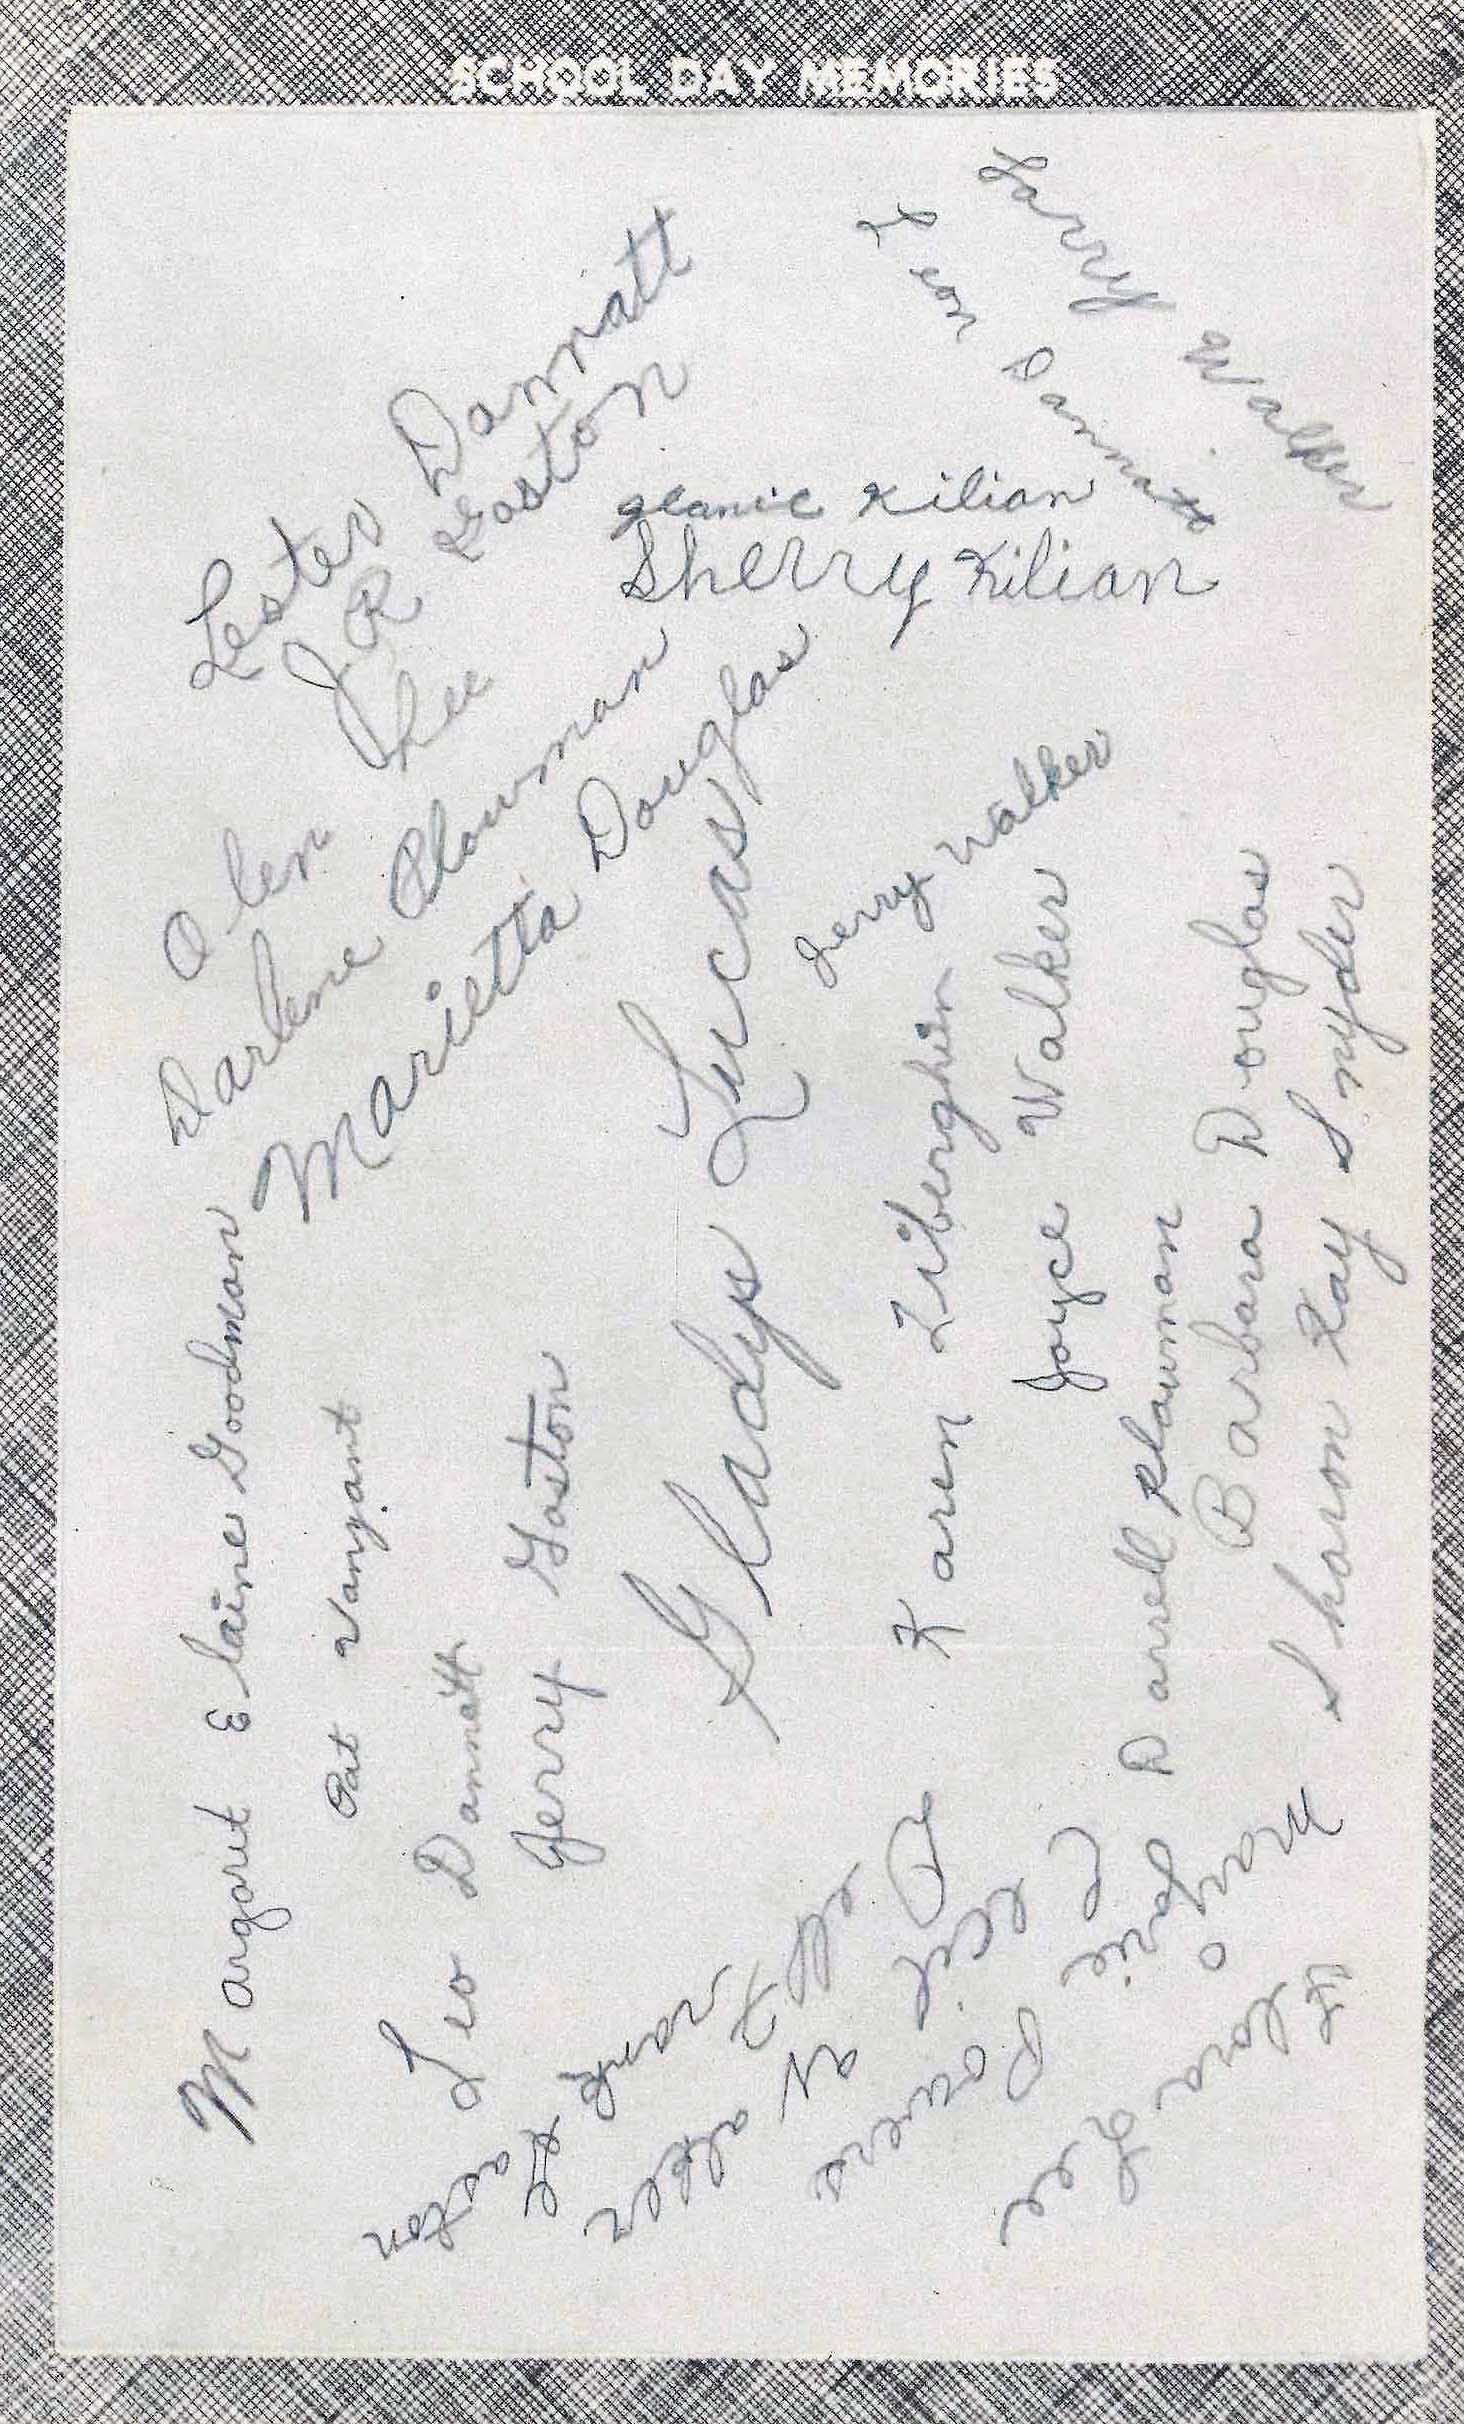 SCHOOL DAY MEMORIES
Larry Walker
Leon Dannatt
Lester Dannatt
J R Gaston
Jeanie Kilian
Sherry Kilian
Olen Lee
Darlene Plowman
Marietta Douglas
Jerry Walker
Gladys Lucas
Karen Liberghien
Joyce Walker
Darrell Plowman
Barbara Douglas
Sharon Kay Snyder
Margaret Elaine Goodman
Pat Vanzant
Leo Dannatt
Jerry Gaston
Frank Gaston
Cecil Walker
Marjorie Powers
Lora Lee